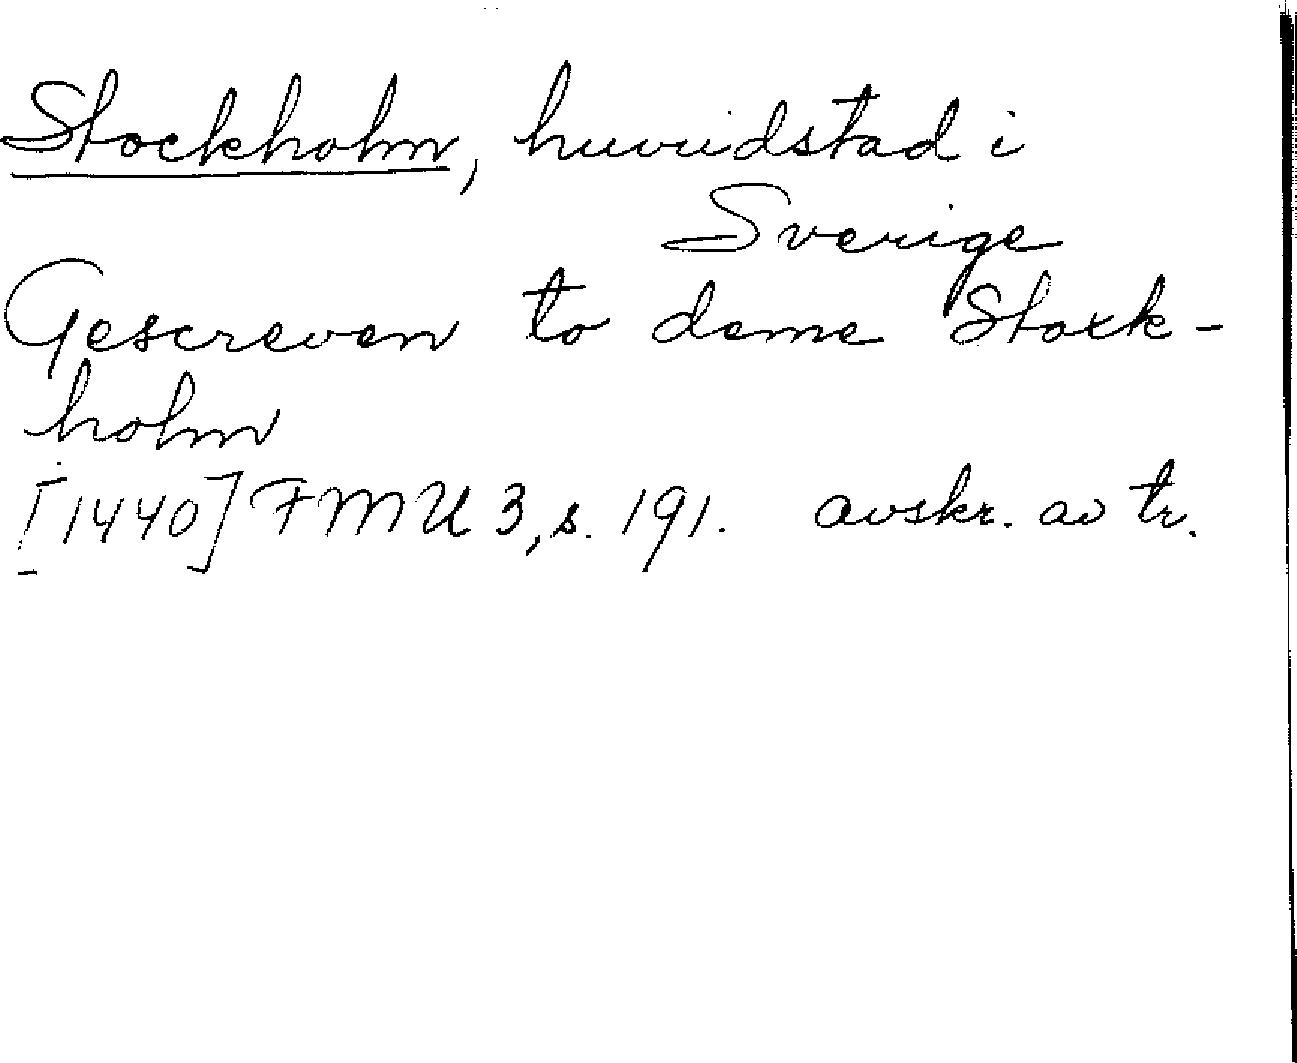 Stockholm, huvudstad i
Sverige
Gescreven to deme Stock-
holm
[1440] FMU 3, s. 191. avskr. av tr.